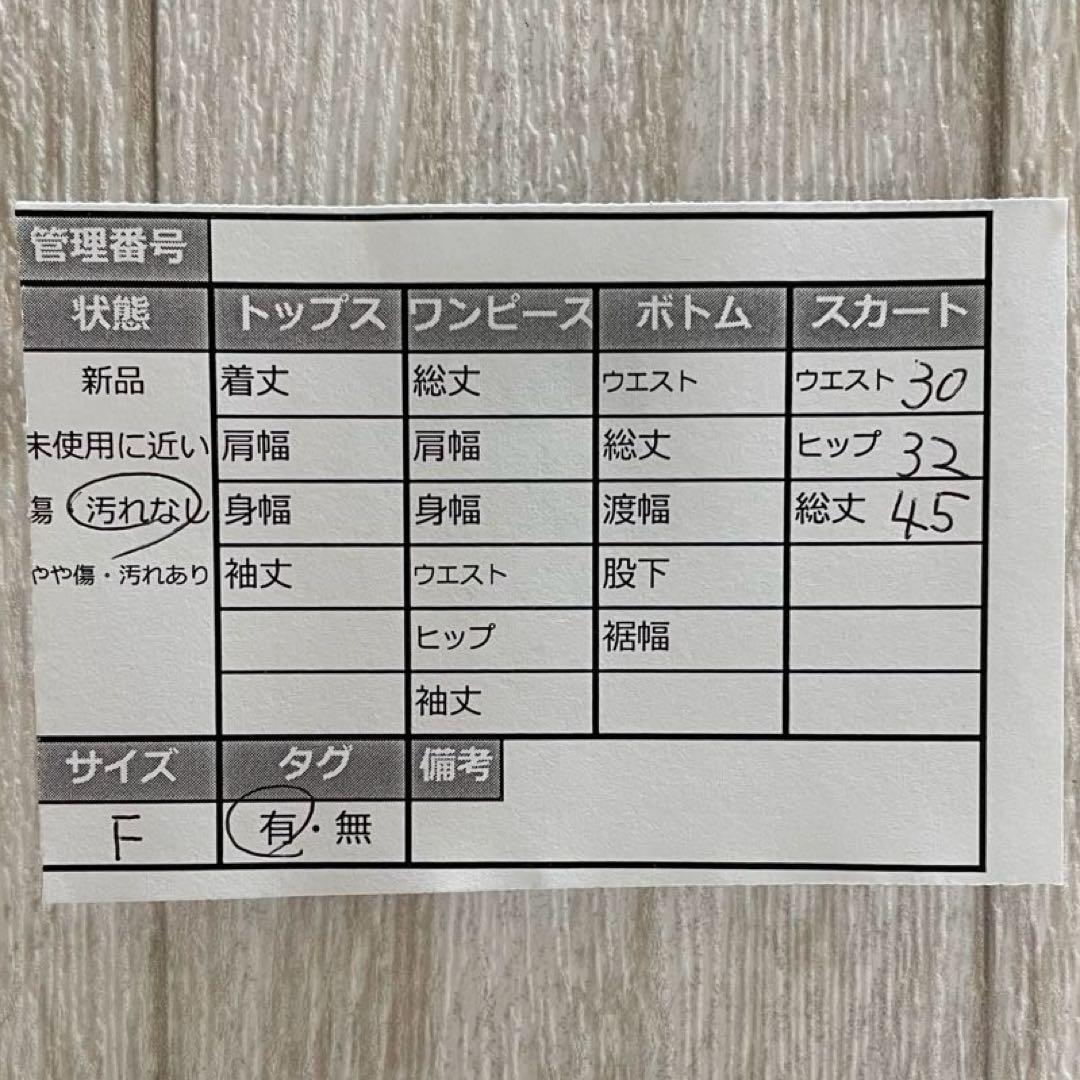 管理番号
状態 トップス ワンピース ボトム スカート
新品 着丈 総丈 ウエスト ウエスト 30
未使用に近い 肩幅 肩幅 総丈 ヒップ 32
傷・汚れなし 身幅 身幅 渡幅 総丈 45
やや傷・汚れあり 袖丈 ウエスト 股下
ヒップ 裾幅
袖丈
サイズ タグ 備考
F 有・無